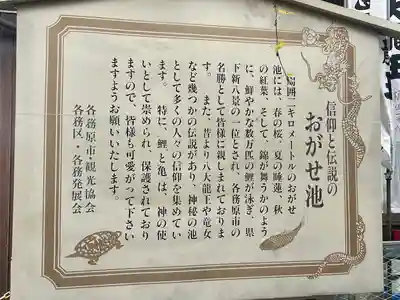 信仰と伝説の
おがせ池
周囲二キロメートルのおがせ
池には、春の桜、夏の睡蓮、秋
の紅葉、そして、錦が舞うかのよう
に、鮮やかな数万匹の鯉が泳ぎ、県
下新八景の一位とされ、各務原市の
名勝として皆様に親しまれておりま
す。また、昔より八大龍王や竜女
など幾つかの伝説があり、神秘の池
として多くの人々の信仰を集めてい
ます。特に、鯉と亀は、神の使
いとして崇められ、保護されており
ますので、皆様も可愛がって下さい
ますようお願いいたします。
各務原市・観光協会
各務区・各務発展会